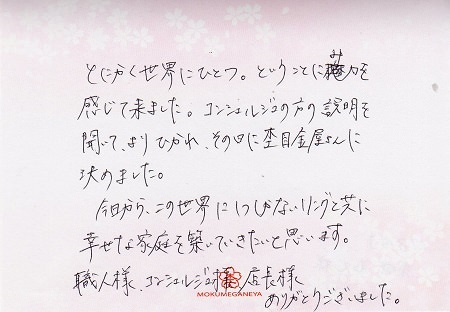 とにかく世界にひとつ。ということに魅力を
感じて来ました。コンシェルジュの方の説明を
聞いて、よりひかれ、その日に杢目金屋さんに
決めました。
今日から、この世界に1つしかないリングと共に
幸せな家庭を築いていきたいと思います。
職人様、コンシェルジュ様、店長様
MOKUMEGANEYA
ありがとうございました。